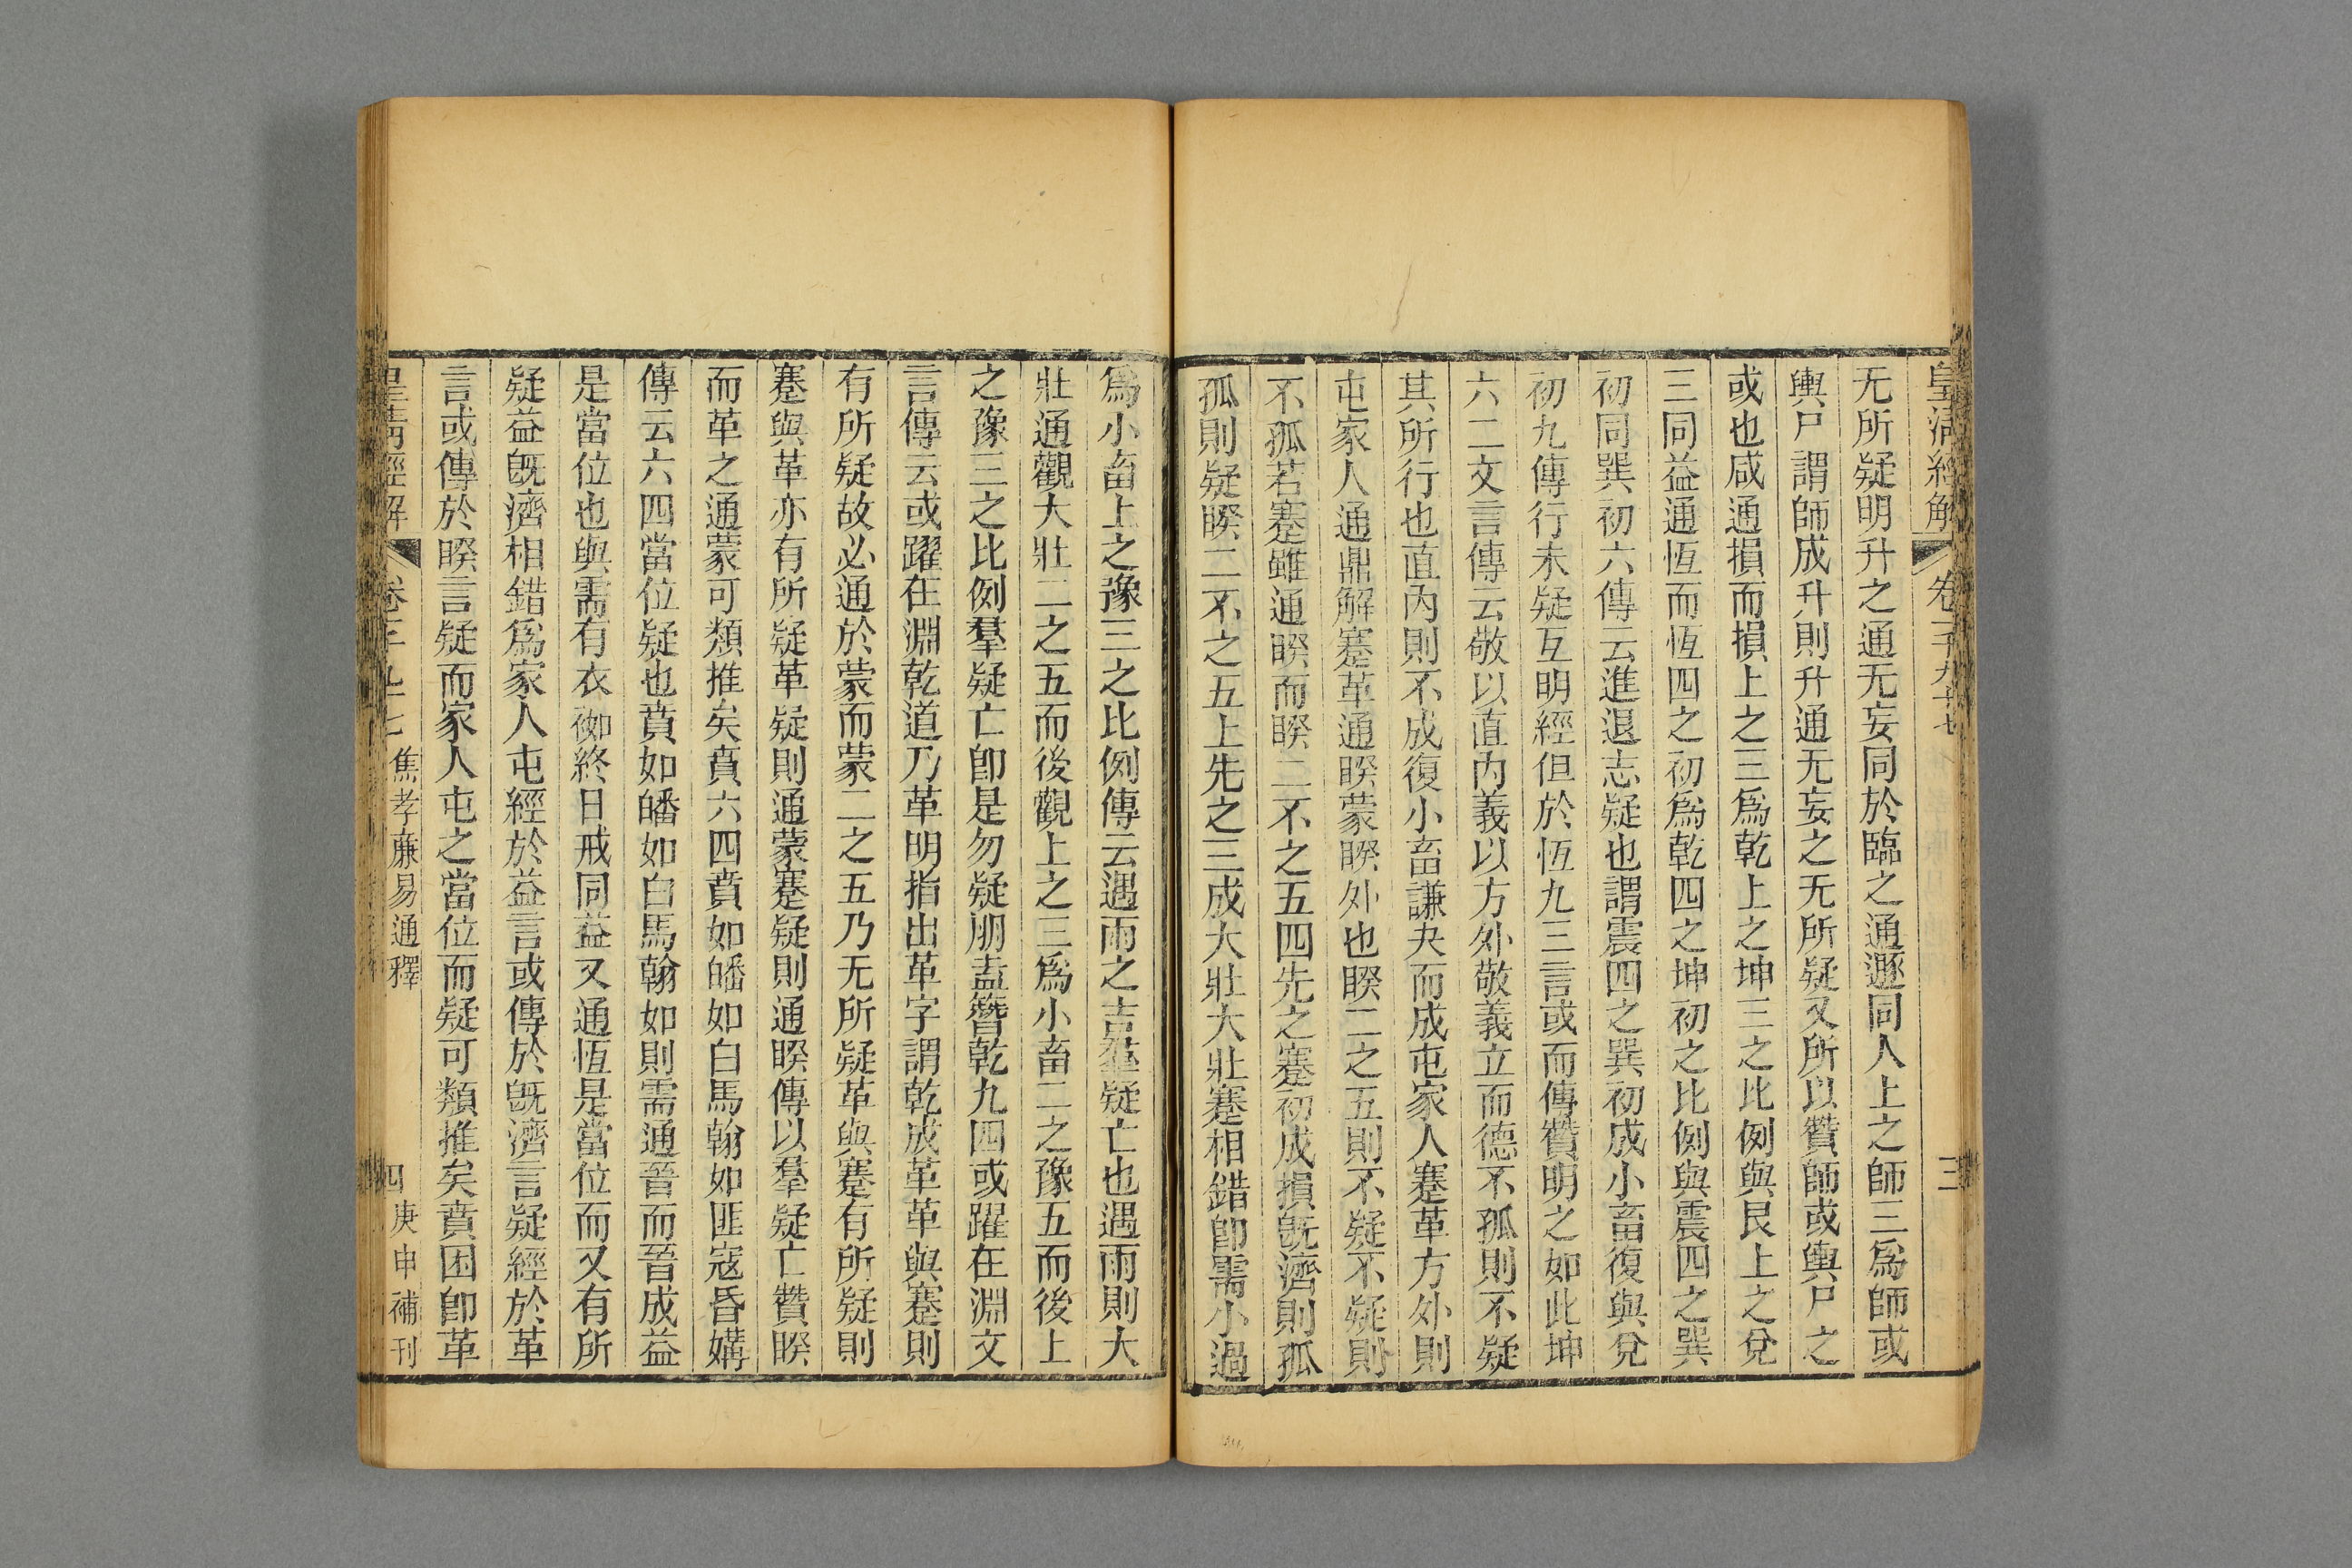 皇清經解
卷一千九十七
三
无所疑明升之通无妄同於臨之通遯同人上之師三爲師或
輿尸謂師成升則升通无妄之无所疑又所以贊師或輿尸之
或也咸通損而損上之三爲乾上之坤三之比例與艮上之兌
三同益通恆而恆四之初爲乾四之坤初之比例與震四之巽
初同巽初六傳云進退志疑也謂震四之巽初成小畜復與兌
初九傳行未疑互明經但於恆九三言或而傳贊明之如此坤
六二文言傳云敬以直內義以方外敬義立而德不孤則不疑
其所行也直內則不成復小畜謙夬而成屯家人蹇革方外則
屯家人通鼎解蹇革通睽蒙睽外也睽二之五則不疑不疑則
不孤若蹇雖通睽而睽二不之五四先之蹇初成損旣濟則孤
孤則疑睽二不之五上先之三成大壯大壯蹇相錯卽需小過
爲小畜上之豫三之比例傳云遇雨之吉羣疑亡也遇雨則大
壯通觀大壯二之五而後觀上之三爲小畜二之豫五而後上
之豫三之比例羣疑亡卽是勿疑朋盍簪乾九四或躍在淵文
言傳云或躍在淵乾道乃革明指出革字謂乾成革革與蹇則
有所疑故必通於蒙而蒙二之五乃无所疑革與蹇有所疑則
蹇與革亦有所疑革疑則通蒙蹇疑則通睽傳以羣疑亡贊睽
而革之通蒙可類推矣賁六四賁如皤如白馬翰如匪寇昏媾
傳云六四當位疑也賁如皤如白馬翰如則需通晉而晉成益
是當位也與需有衣袽終日戒同益又通恆是當位而又有所
疑益旣濟相錯爲家人屯經於益言或傳於旣濟言疑經於革
言或傳於睽言疑而家人屯之當位而疑可類推矣賁困卽革
皇清經解
卷一千九十七
焦孝廉易通釋
四
庚申補刊